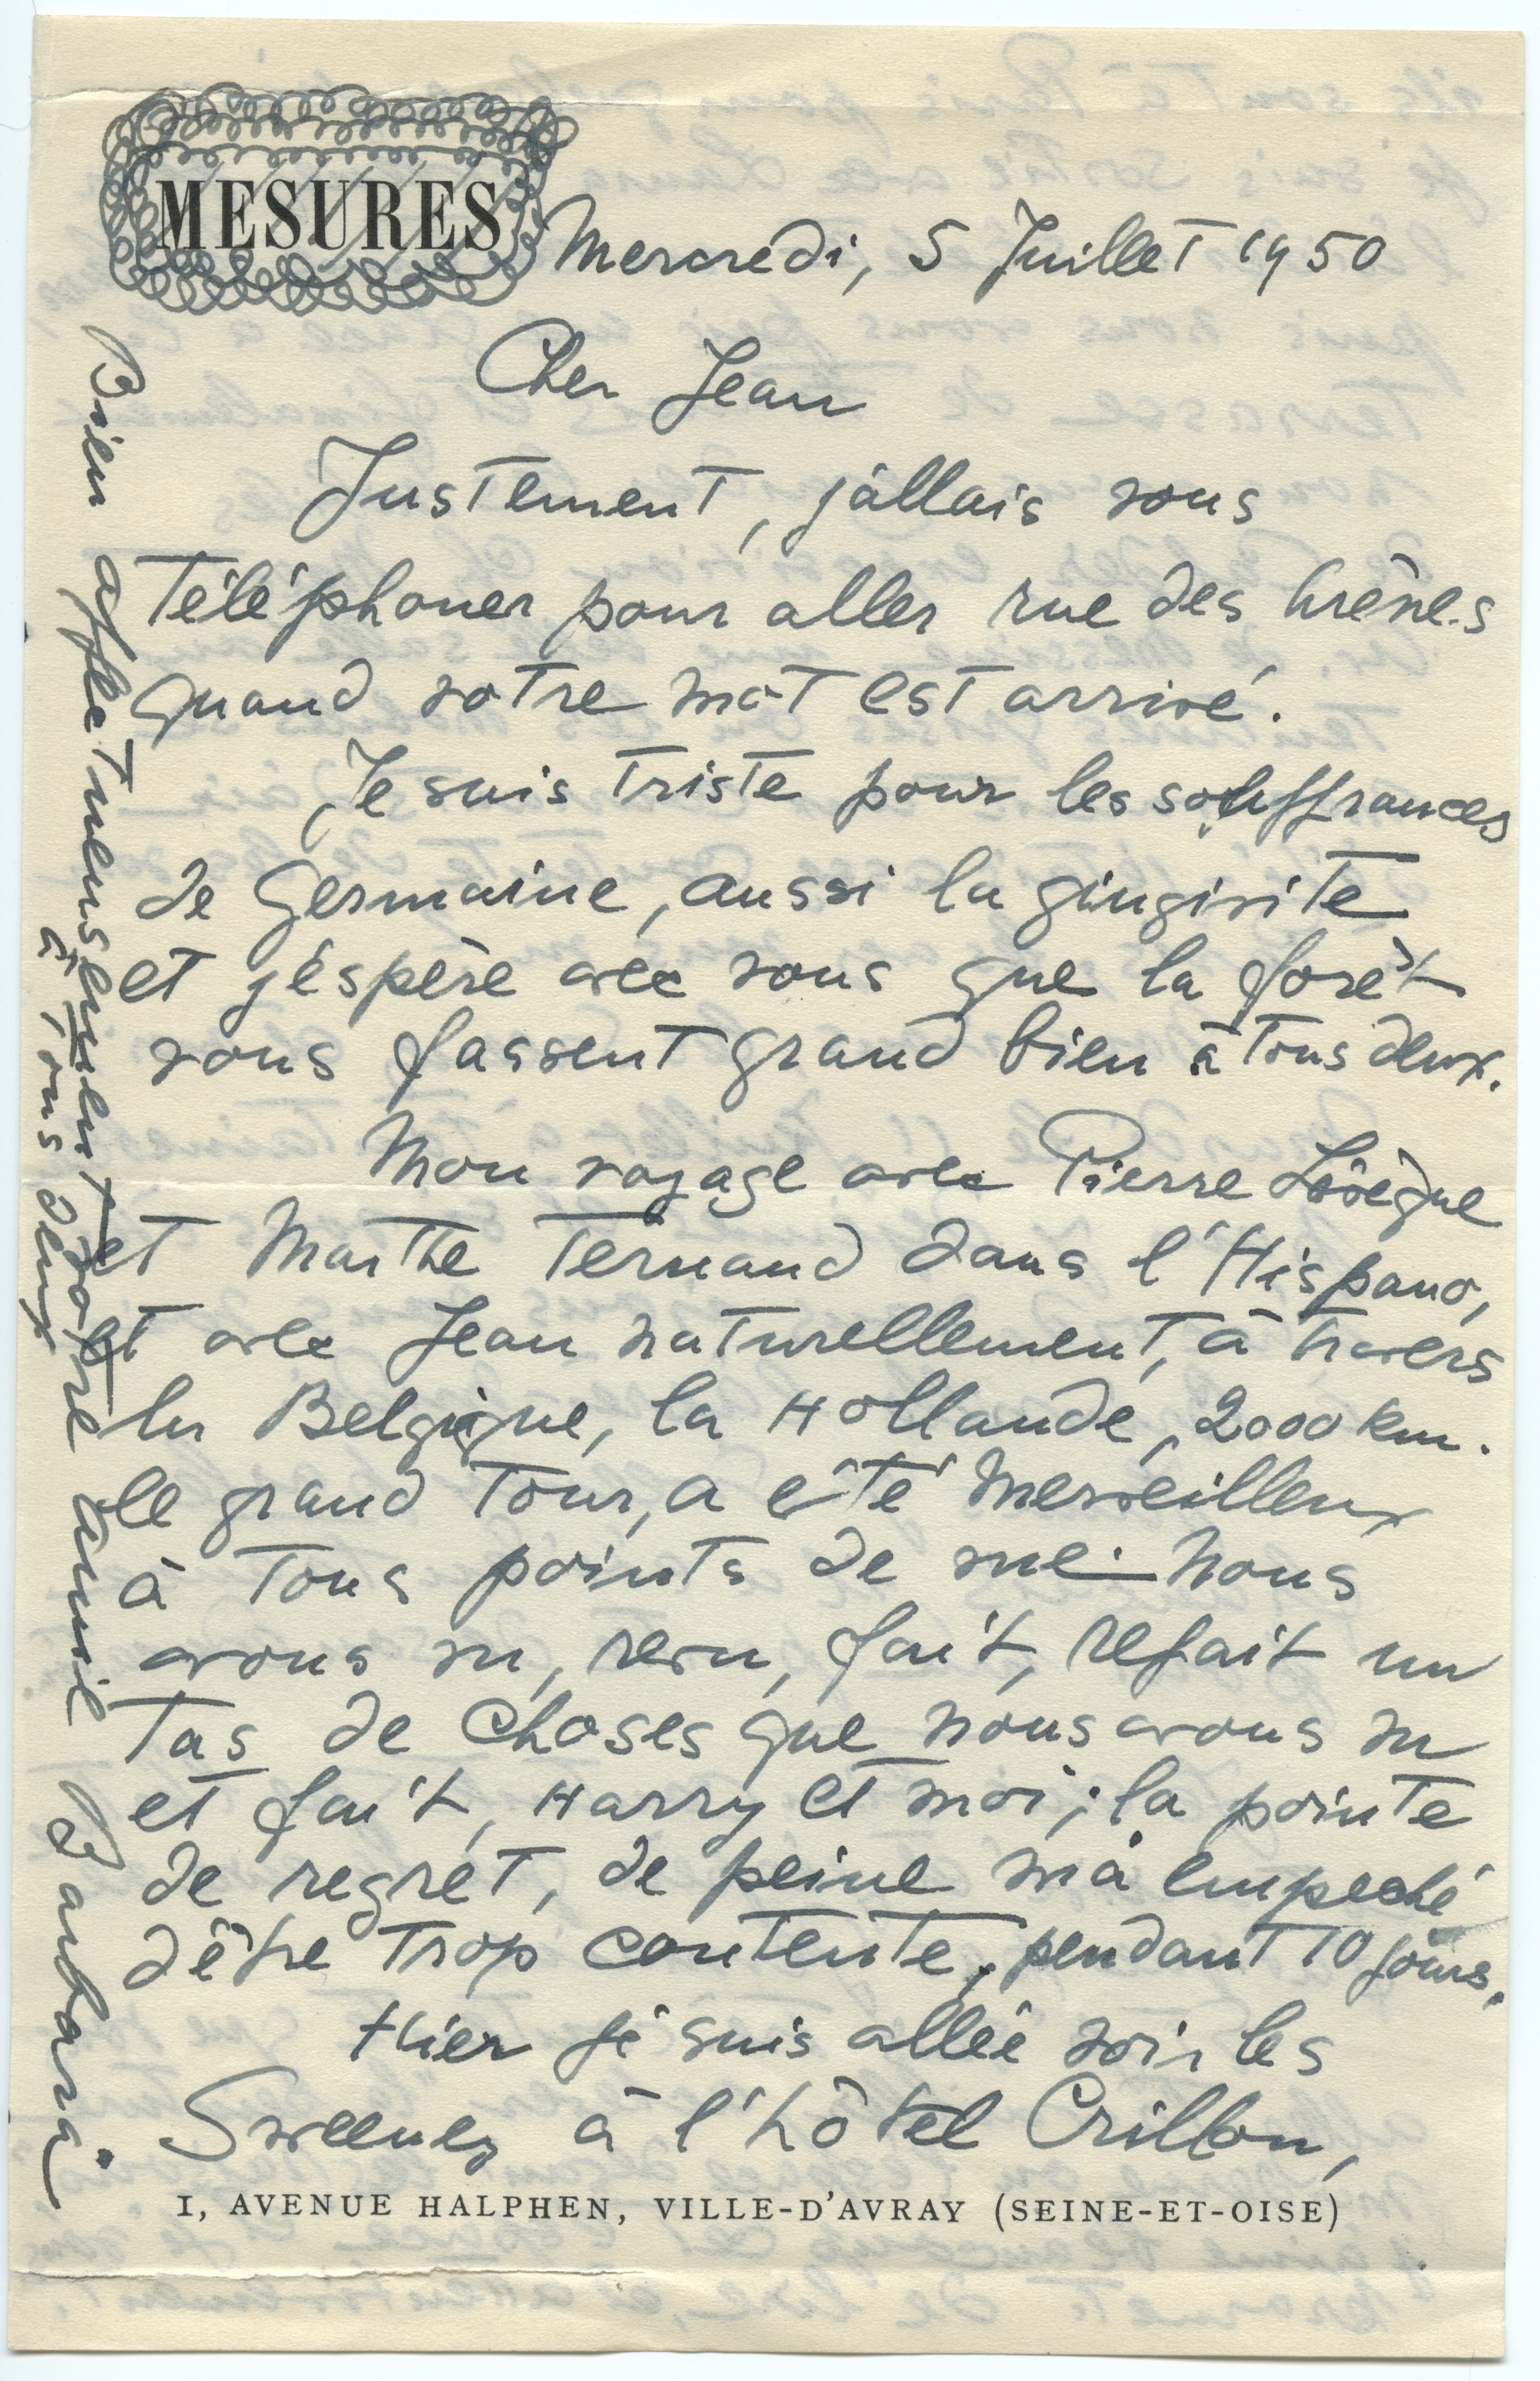 MESURES
Mercredi, 5 Juillet 1950
Cher Jean
Justement, j'allais vous
téléphoner pour aller rue des Arènes
quand votre mot est arrivé.
Je suis triste pour les souffrances
de Germaine, aussi la gingivite
et j'éspère avec vous que la forêt
vous fassent grand bien à tous deux.
Mon voyage avec Pierre Lévèque
et Marthe Fernand dans l'Hispano,
et avec Jean naturellement, à travers
la Belgique, la Hollande, 2000 km.
le grand tour, a été merveilleux
à tous points de vue : nous
avons vu, revu, fait, refait un
tas de choses que nous avons vu
et fait, Harry et moi ; la pointe
de regret, de peine m'a empeché
d'être trop contente, pendant 10 jours.
Hier je suis allée voir les
Sweeney à l'hôtel Crillon,
1, AVENUE HALPHEN, VILLE-D'AVRAY (SEINE-ET-OISE)
Bien affectueusement votre amie Barbara
à vous deux